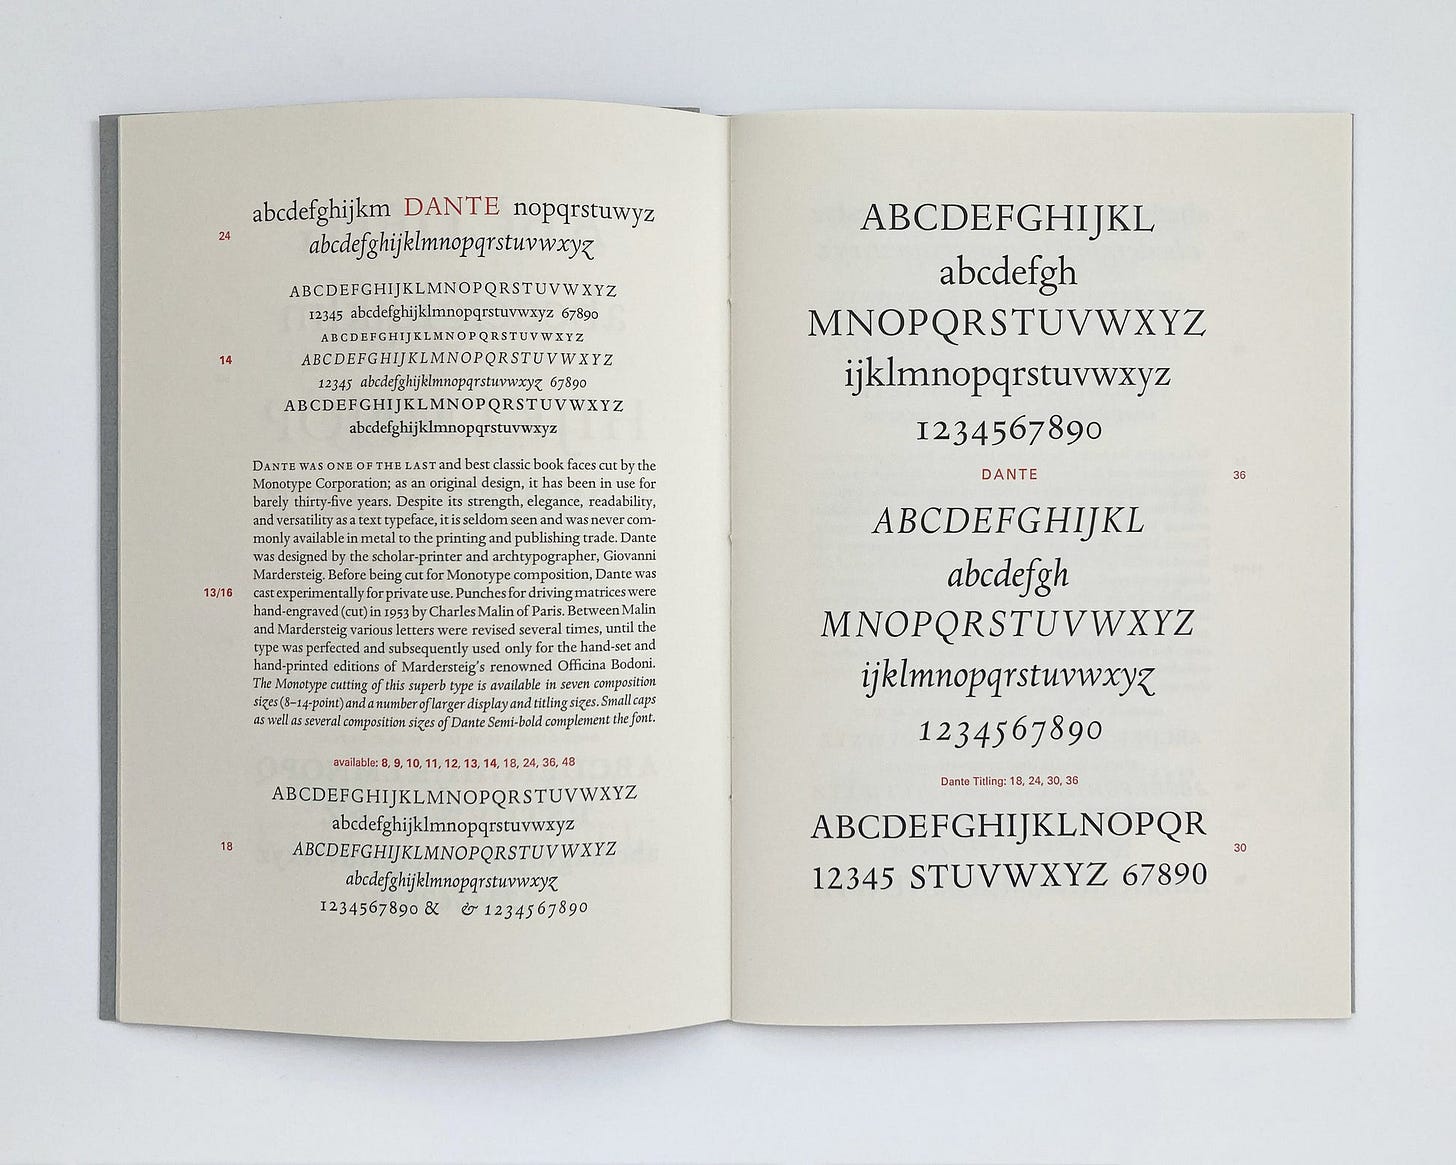 abcdefghijkm DANTE nopqrstuwyz
24
abcdefghijklmnopqrstuvwxyz
ABCDEFGHIJKLMNOPQRSTUVWXYZ
12345 abcdefghijklmnopqrstuvwxyz 67890
ABCDEFGHIJKLMNOPQRSTUVWXYZ
14
ABCDEFGHIJKLMNOPQRSTUVWXYZ
12345 abcdefghijklmnopqrstuvwxyz 67890
ABCDEFGHIJKLMNOPQRSTUVWXYZ
abcdefghijklmnopqrstuvwxyz
DANTE WAS ONE OF THE LAST and best classic book faces cut by the
Monotype Corporation; as an original design, it has been in use for
barely thirty-five years. Despite its strength, elegance, readability,
and versatility as a text typeface, it is seldom seen and was never com-
monly available in metal to the printing and publishing trade. Dante
was designed by the scholar-printer and archtypographer, Giovanni
Mardersteig. Before being cut for Monotype composition, Dante was
13/16
cast experimentally for private use. Punches for driving matrices were
hand-engraved (cut) in 1953 by Charles Malin of Paris. Between Malin
and Mardersteig various letters were revised several times, until the
type was perfected and subsequently used only for the hand-set and
hand-printed editions of Mardersteig's renowned Officina Bodoni.
The Monotype cutting of this superb type is available in seven composition
sizes (8–14-point) and a number of larger display and titling sizes. Small caps
as well as several composition sizes of Dante Semi-bold complement the font.
available: 8, 9, 10, 11, 12, 13, 14, 18, 24, 36, 48
ABCDEFGHIJKLMNOPQRSTUVWXYZ
abcdefghijklmnopqrstuvwxyz
18
ABCDEFGHIJKLMNOPQRSTUVWXYZ
abcdefghijklmnopqrstuvwxyz
1234567890 & & 1234567890
ABCDEFGHIJKL
abcdefgh
MNOPQRSTUVWXYZ
ijklmnopqrstuvwxyz
1234567890
DANTE
36
ABCDEFGHIJKL
abcdefgh
MNOPQRSTUVWXYZ
ijklmnopqrstuvwxyz
1234567890
Dante Titling: 18, 24, 30, 36
ABCDEFGHIJKLNOPQR
30
12345 STUVWXYZ 67890